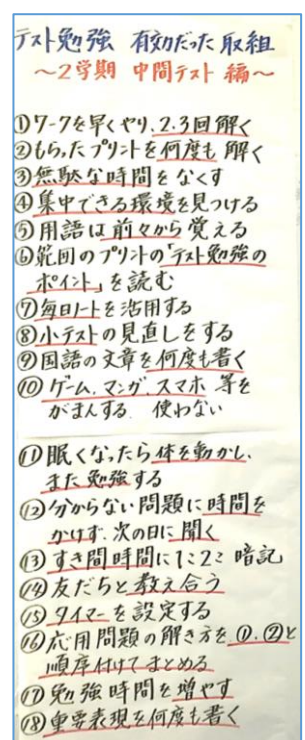 テスト勉強 有効だった取組
～2学期 中間テスト編～
①ワークを早くやり、2.3回解く
②もらったプリントを何度も解く
③無駄な時間をなくす
④集中できる環境を見つける
⑤用語は前々から覚える
⑥範囲のプリントの「テスト勉強の
ポイント」を読む
⑦毎日ノートを活用する
⑧小テストの見直しをする
⑨国語の文章を何度も書く
⑩ゲーム、マンガ、スマホ等を
がまんする 使わない
⑪眠くなったら体を動かし、
また勉強する
⑫分からない問題に時間を
かけず、次の日に聞く
⑬すき間時間に1こ2こ暗記
⑭友だちと教え合う
⑮タイマーを設定する
⑯応用問題の解き方を①、②と
順序付けてまとめる
⑰勉強時間を増やす
⑱重要表現を何度も書く